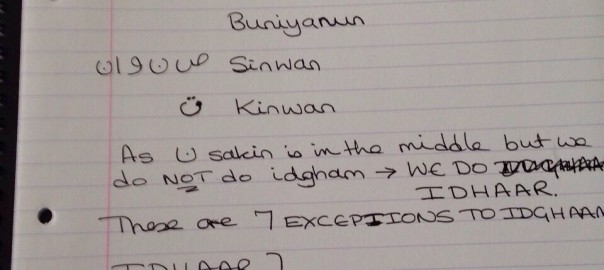 Buniyanun
صنوان Sinwan
Kinwan
As ن sakin is in the middle but we
do NOT do idgham → WE DO
IDHAAR.
These are 7 EXCEPTIONS TO IDGHAAM
IDHAAR